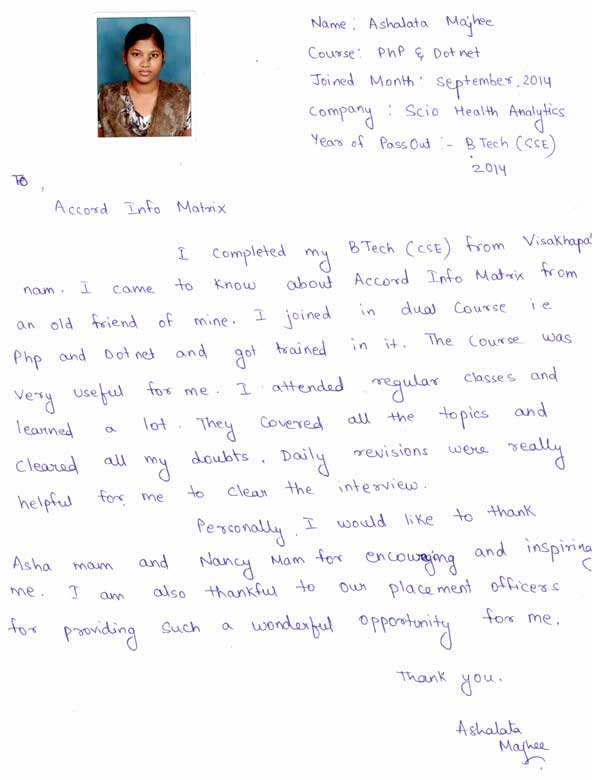 Name: Ashalata Majhee
Course: PhP & Dotnet
Joined Month: September, 2014
Company: Scio Health Analytics
Year of PassOut :- B Tech (CSE)
2014
To,
Accord Info Matrix
I completed my BTech (CSE) from Visakhapat
nam. I came to know about Accord Info Matrix from
an old friend of mine. I joined in dual Course i.e
Php and Dotnet and got trained in it. The Course was
very useful for me. I attended regular classes and
learned a lot. They Covered all the topics and
Cleared all my doubts. Daily revisions were really
helpful for me to clear the interview.
Personally, I would like to thank
Asha mam and Nancy Mam for encouraging and inspiring
me. I am also thankful to our placement officers
for providing such a wonderful opportunity for me.
Thank you.
Ashalata
Majhee